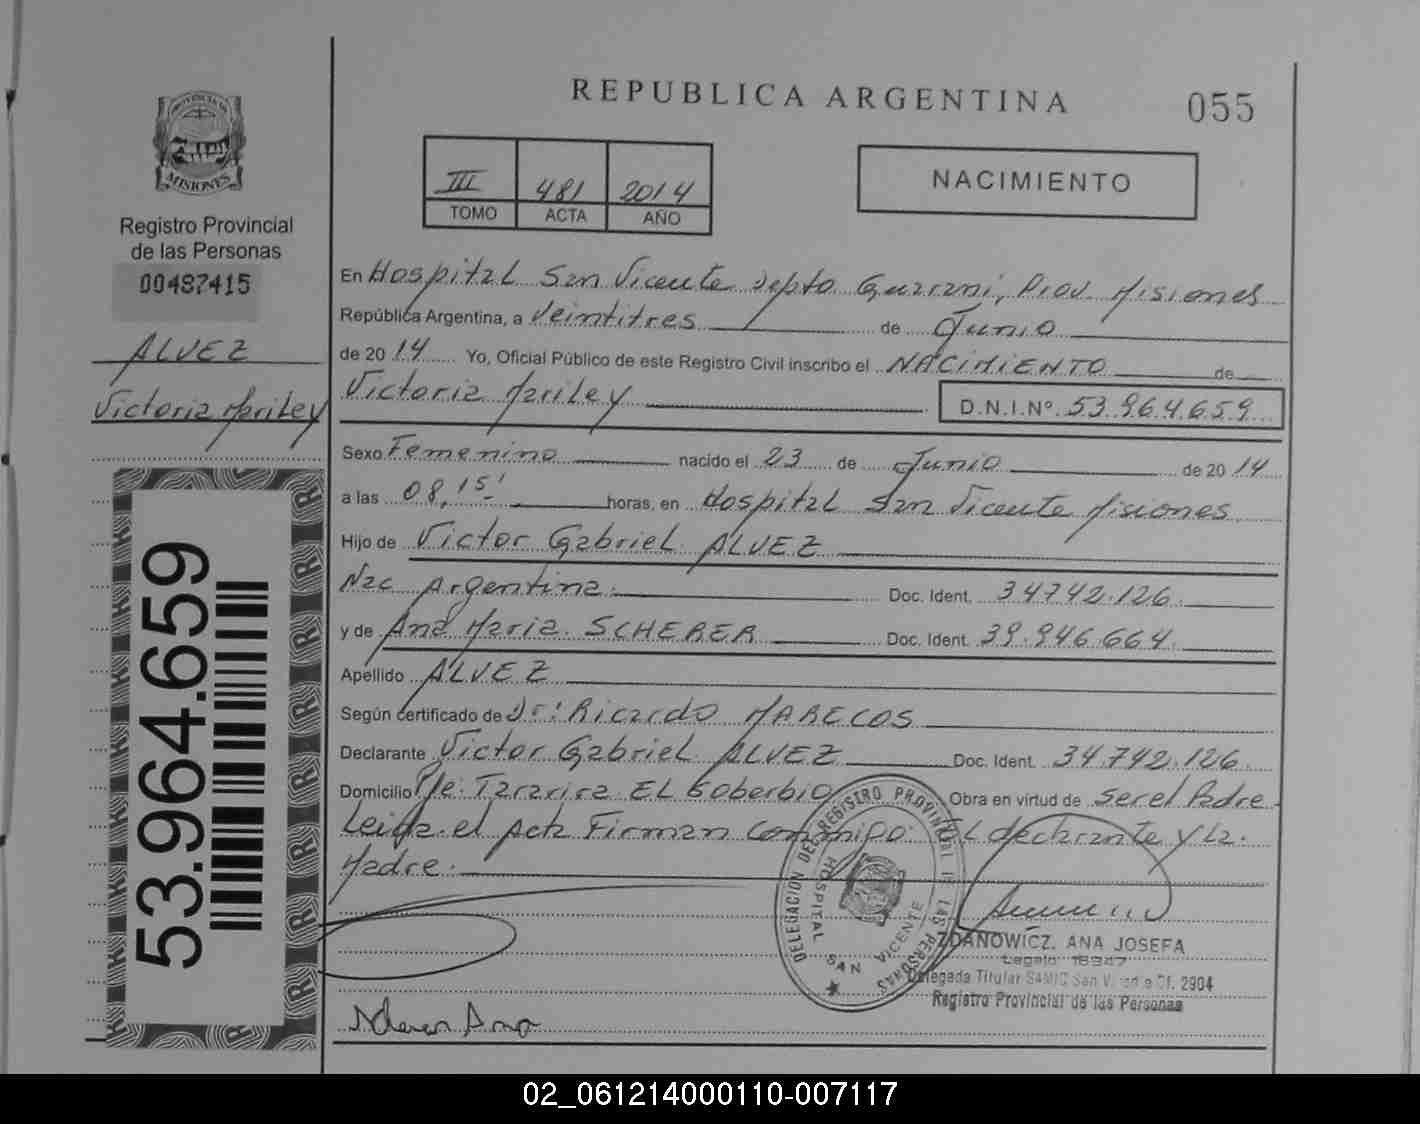 REPUBLICA ARGENTINA
055
PROVINCIA DE
MISIONES
Registro Provincial
de las Personas
00487415
ALVEZ
Victoria Mariley
53.964.659
III 481 2014
TOMO ACTA AÑO
NACIMIENTO
En Hospital San Vicente Depto Guarani, Prov. Misiones
República Argentina, a Veintitres de Junio
de 2014 Yo, Oficial Público de este Registro Civil inscribo el NACIMIENTO de
Victoria Mariley D.N.I.Nº 53.964.659
Sexo Femenino nacido el 23 de Junio de 2014
a las 08,15' horas, en Hospital San Vicente Misiones
Hijo de Victor Gabriel ALVEZ
Nac Argentina. Doc. Ident. 34742.126.
y de Ana Maria. SCHERER Doc. Ident. 39.946.664.
Apellido ALVEZ
Según certificado de Dr: Ricardo MARECOS
Declarante Victor Gabriel ALVEZ Doc. Ident. 34.742.126.
Domicilio Pje: Tararira EL Soberbio Obra en virtud de ser el Padre
Leida el Acta Firman Conmigo: EL declarante y La
Madre.
DELEGACION DEL REGISTRO PROVINCIAL DE LAS PERSONAS
HOSPITAL SAN VICENTE
ZDANOWICZ, ANA JOSEFA
Legajo 18347
Delegada Titular SAMIC San V. Of. 2904
Registro Provincial de las Personas
Ana
02_061214000110-007117